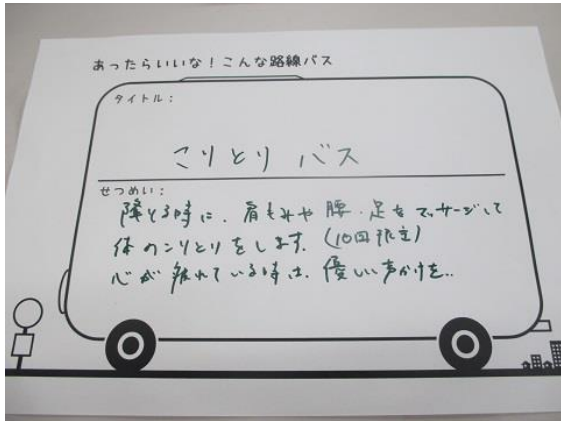 あったらいいな！こんな路線バス
タイトル：
こりとり バス
せつめい：
降りる時に、肩もみや腰・足をマッサージして
体のこりとりをします。（10回限定）
心が疲れている時は、優しい声かけを..